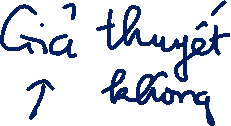 Giả thuyết
↑ không